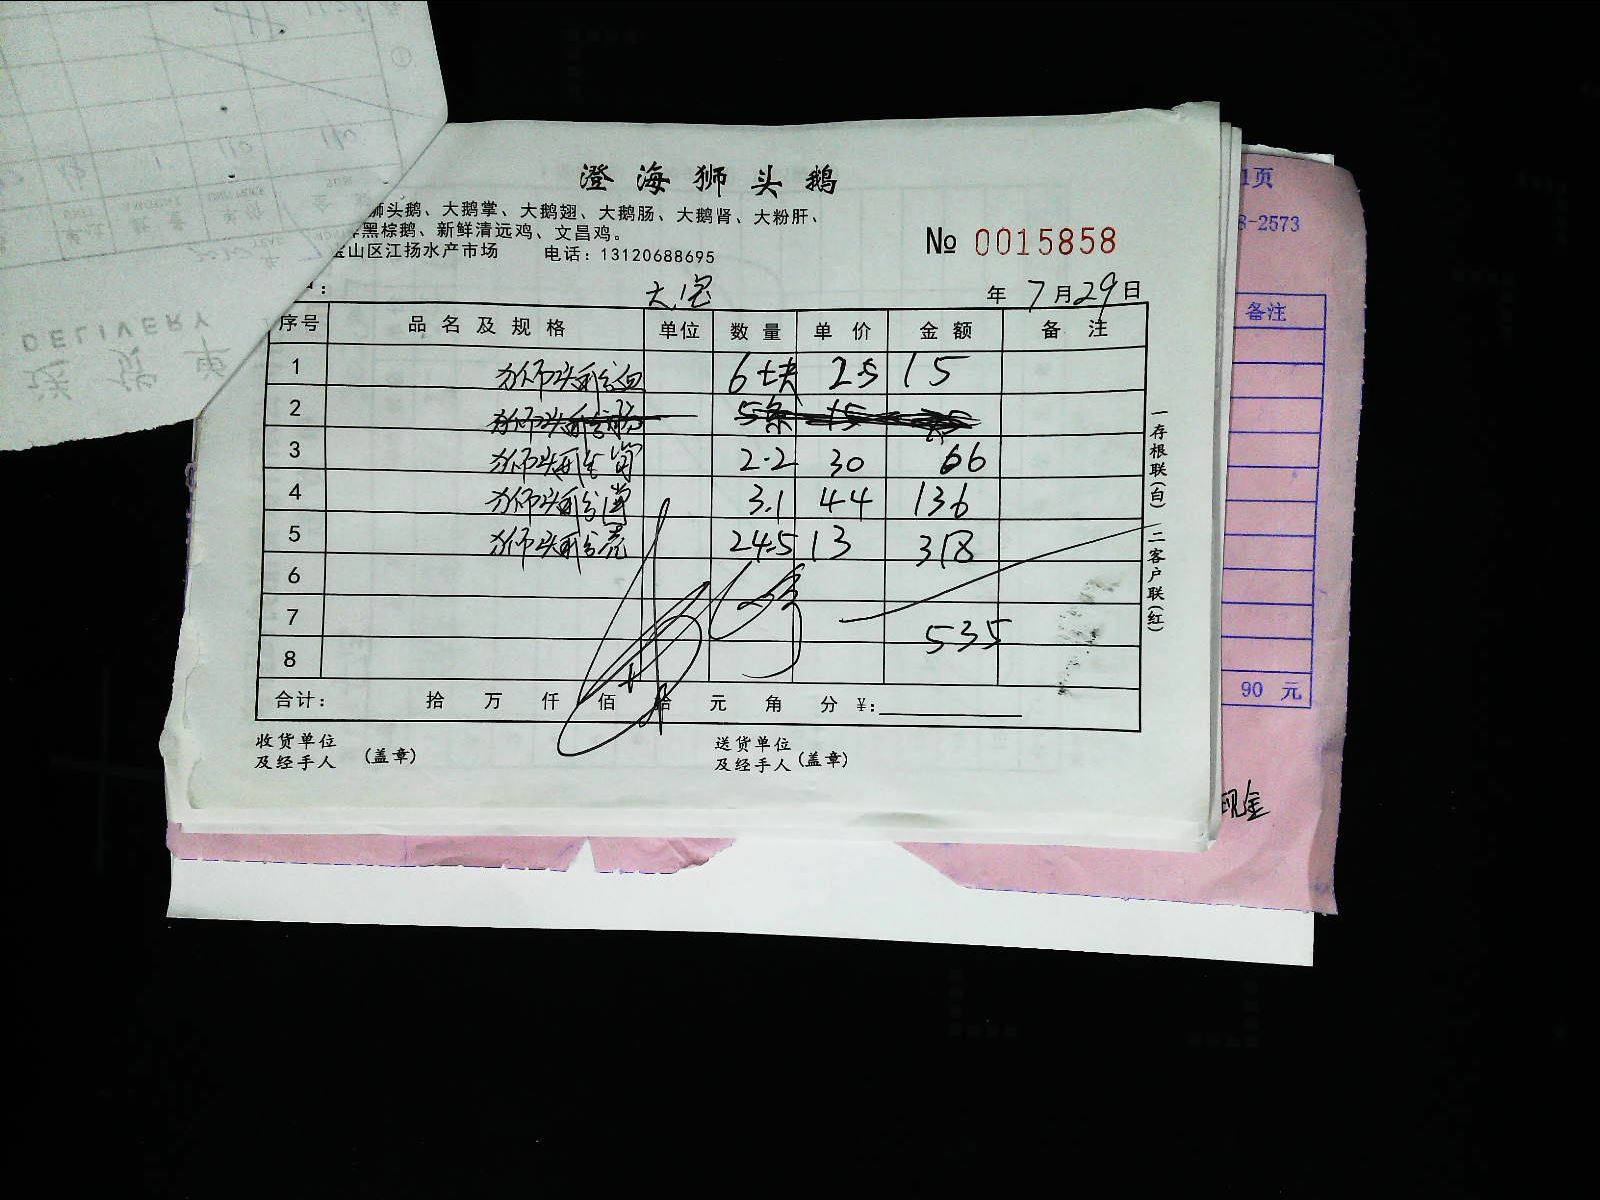 澄海狮头鹅
狮头鹅、大鹅掌、大鹅翅、大鹅肠、大鹅肾、大粉肝、
黑棕鹅、新鲜清远鸡、文昌鸡。
宝山区江扬水产市场 电话：13120688695
№ 0015858
： 大宝 年 7月29日
序号 品名及规格 单位 数量 单价 金额 备注
1 狮头鹅血 6块 2.5 15
2 狮头鹅肠 5条 15 75
3 狮头鹅肾 2.2 30 66
4 狮头鹅掌 3.1 44 136
5 狮头鹅壳 24.5 13 318
6
7 535
8
合计： 拾 万 仟 佰 拾 元 角 分 ¥：
收货单位
及经手人 （盖章）
送货单位
及经手人（盖章）
一存根联（白） 二客户联（红）
1页
8-2573
备注
90 元
现金
送货单
DELIVERY